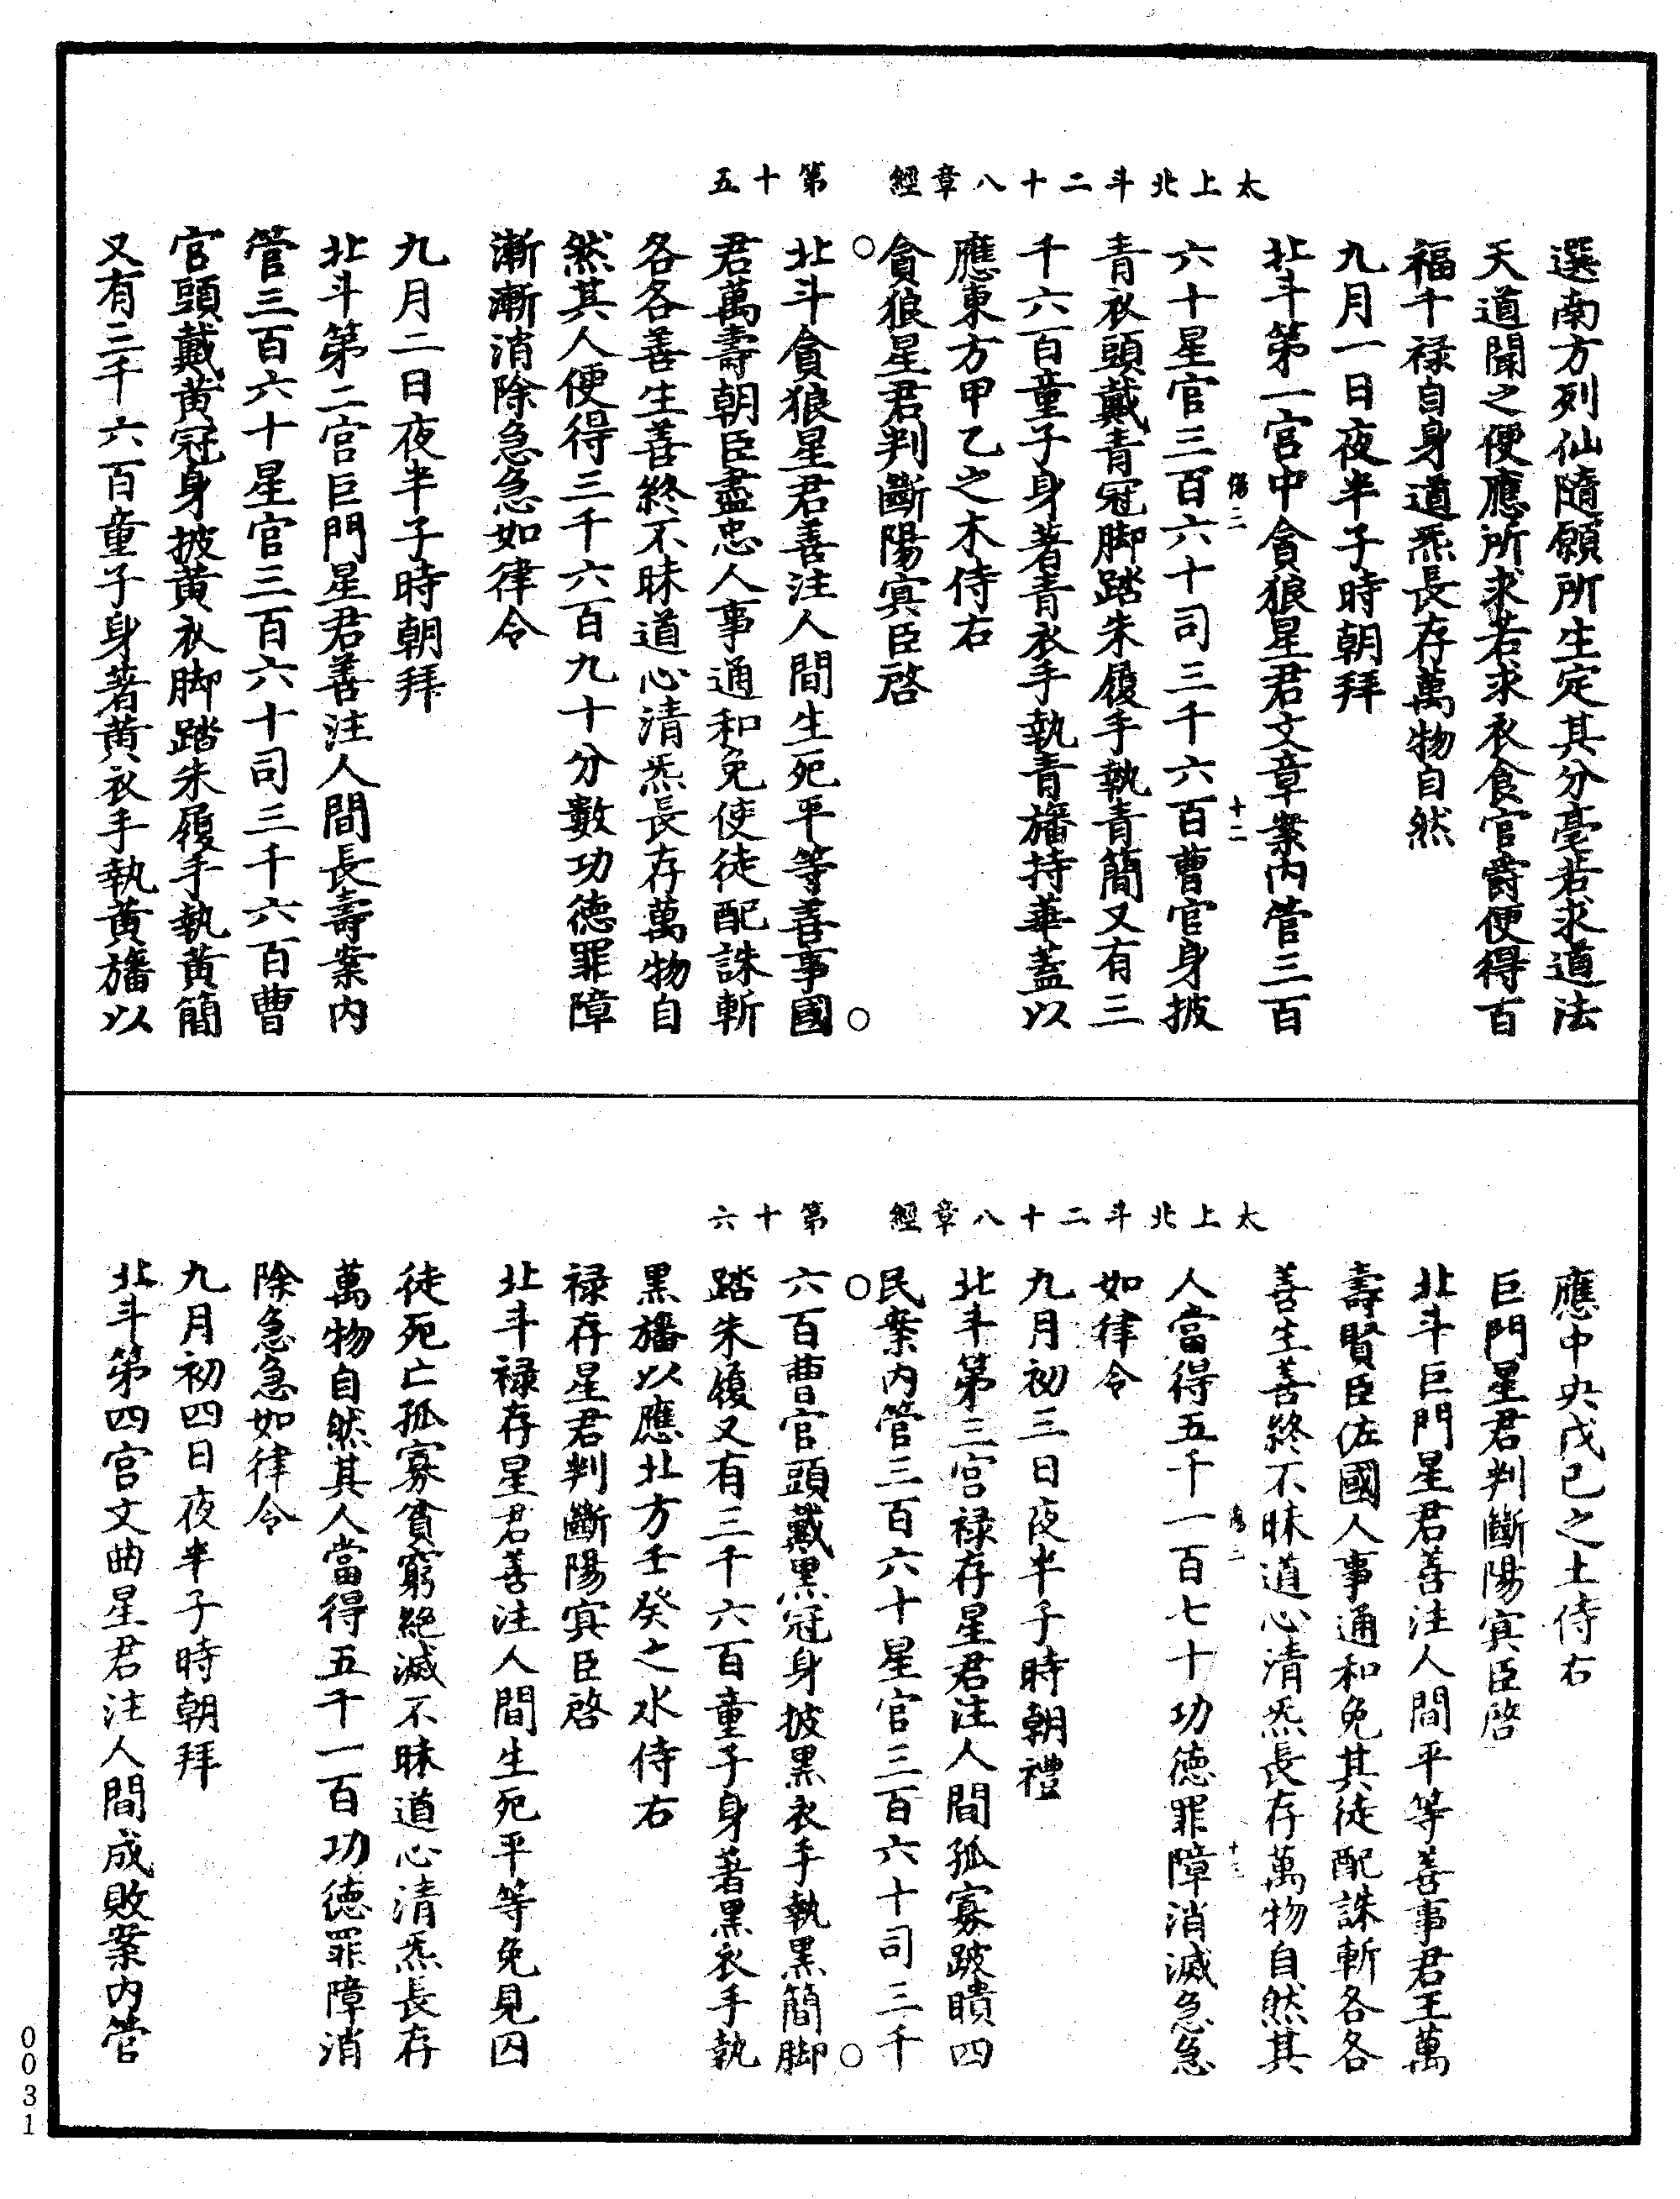 太上北斗二十八章經　第十五
選南方列仙隨願所生定其分毫若求道法
天道聞之便應所求若求衣食官爵便得百
福千禄自身道炁長存萬物自然
九月一日夜半子時朝拜
北斗第一宫中貪狼星君文章案内管三百
傷二　十二
六十星官三百六十司三千六百曹官身披
青衣頭戴青冠脚踏朱履手執青簡又有三
千六百童子身著青衣手執青旛持華蓋以
應東方甲乙之木侍右
貪狼星君判斷陽㝠臣啓
北斗貪狼星君善注人間生死平等善事國
君萬壽朝臣盡忠人事通和免使徒配誅斬
各各善生善終不昧道心清炁長存萬物自
然其人便得三千六百九十分數功德罪障
漸漸消除急急如律令
九月二日夜半子時朝拜
北斗第二宫巨門星君善注人間長壽案内
管三百六十星官三百六十司三千六百曹
官頭戴黄冠身披黄衣脚踏朱履手執黄簡
又有三千六百童子身著黄衣手執黄旛以
太上北斗二十八章經　第十六
應中央戊己之土侍右
巨門星君判斷陽㝠臣啓
北斗巨門星君善注人間平等善事君王萬
壽賢臣佐國人事通和免其徒配誅斬各各
善生善終不昧道心清炁長存萬物自然其
二　十三
人當得五千一百七十功德罪障消滅急急
如律令
九月初三日夜半子時朝禮
北斗第三宫禄存星君注人間孤寡跛瞶四
民案内管三百六十星官三百六十司三千
六百曹官頭戴黑冠身披黑衣手執黑簡脚
踏朱履又有三千六百童子身著黑衣手執
黑旛以應北方壬癸之水侍右
禄存星君判斷陽㝠臣啓
北斗禄存星君善注人間生死平等免見囚
徒死亡孤寡貧窮絶滅不昧道心清炁長存
萬物自然其人當得五千一百功德罪障消
除急急如律令
九月初四日夜半子時朝拜
北斗第四宫文曲星君注人間成敗案内管
0031